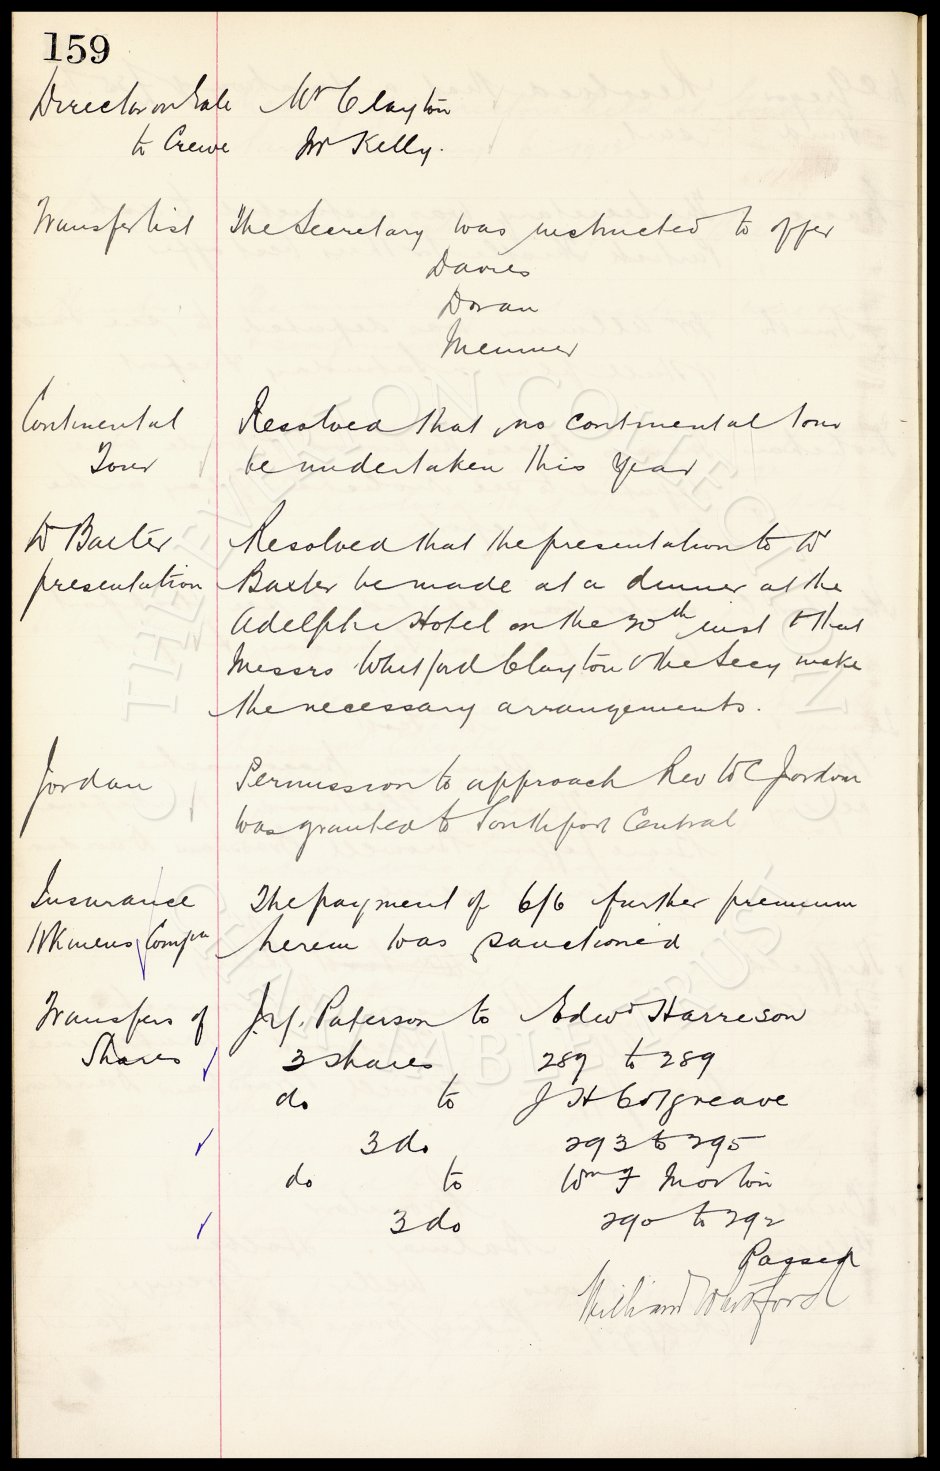 159
Director on Gate Mr Clayton
to Crewe Mr Kelly.
Transfer list The Secretary was instructed to offer
Davies
Doran
Meunier
Continental Resolved that no continental tour
Tour be undertaken this year
Dr Baxter Resolved that the presentation to Dr
presentation Baxter be made at a dinner at the
Adelphi Hotel on the 30th inst & that
Messrs Whitford Clayton & the Secy make
the necessary arrangements.
Jordan Permission to approach Rev W C Jordan
was granted to Southport Central
Insurance The payment of 6/6 further premium
Wkmens Compn herein was sanctioned
Transfers of Paterson to Edwd Harreson
Shares 3 shares 287 to 289
do to J H Colgreave
3 do 293 to 295
do to Wm F Morton
3 do 290 to 292
Passed
William Whitford
THE EVERTON COLLECTION
CHARITABLE TRUST